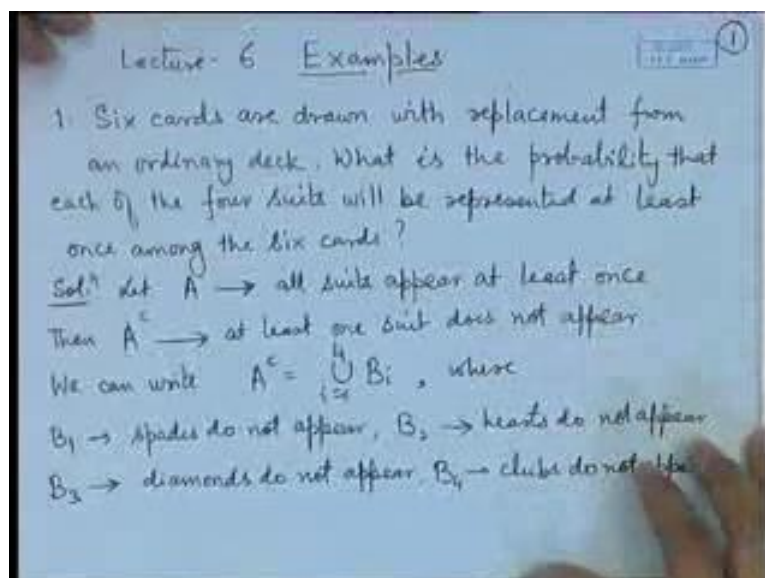 Lecture - 6 Examples
1
1. Six cards are drawn with replacement from
an ordinary deck. What is the probability that
each of the four suits will be represented at least
once among the six cards?
Sol.ⁿ Let A → all suits appear at least once
Then Aᶜ → at least one suit does not appear
We can write Aᶜ = ⋃ᵢ₌₁⁴ Bi, where
B₁ → spades do not appear, B₂ → hearts do not appear
B₃ → diamonds do not appear, B₄ → clubs do not